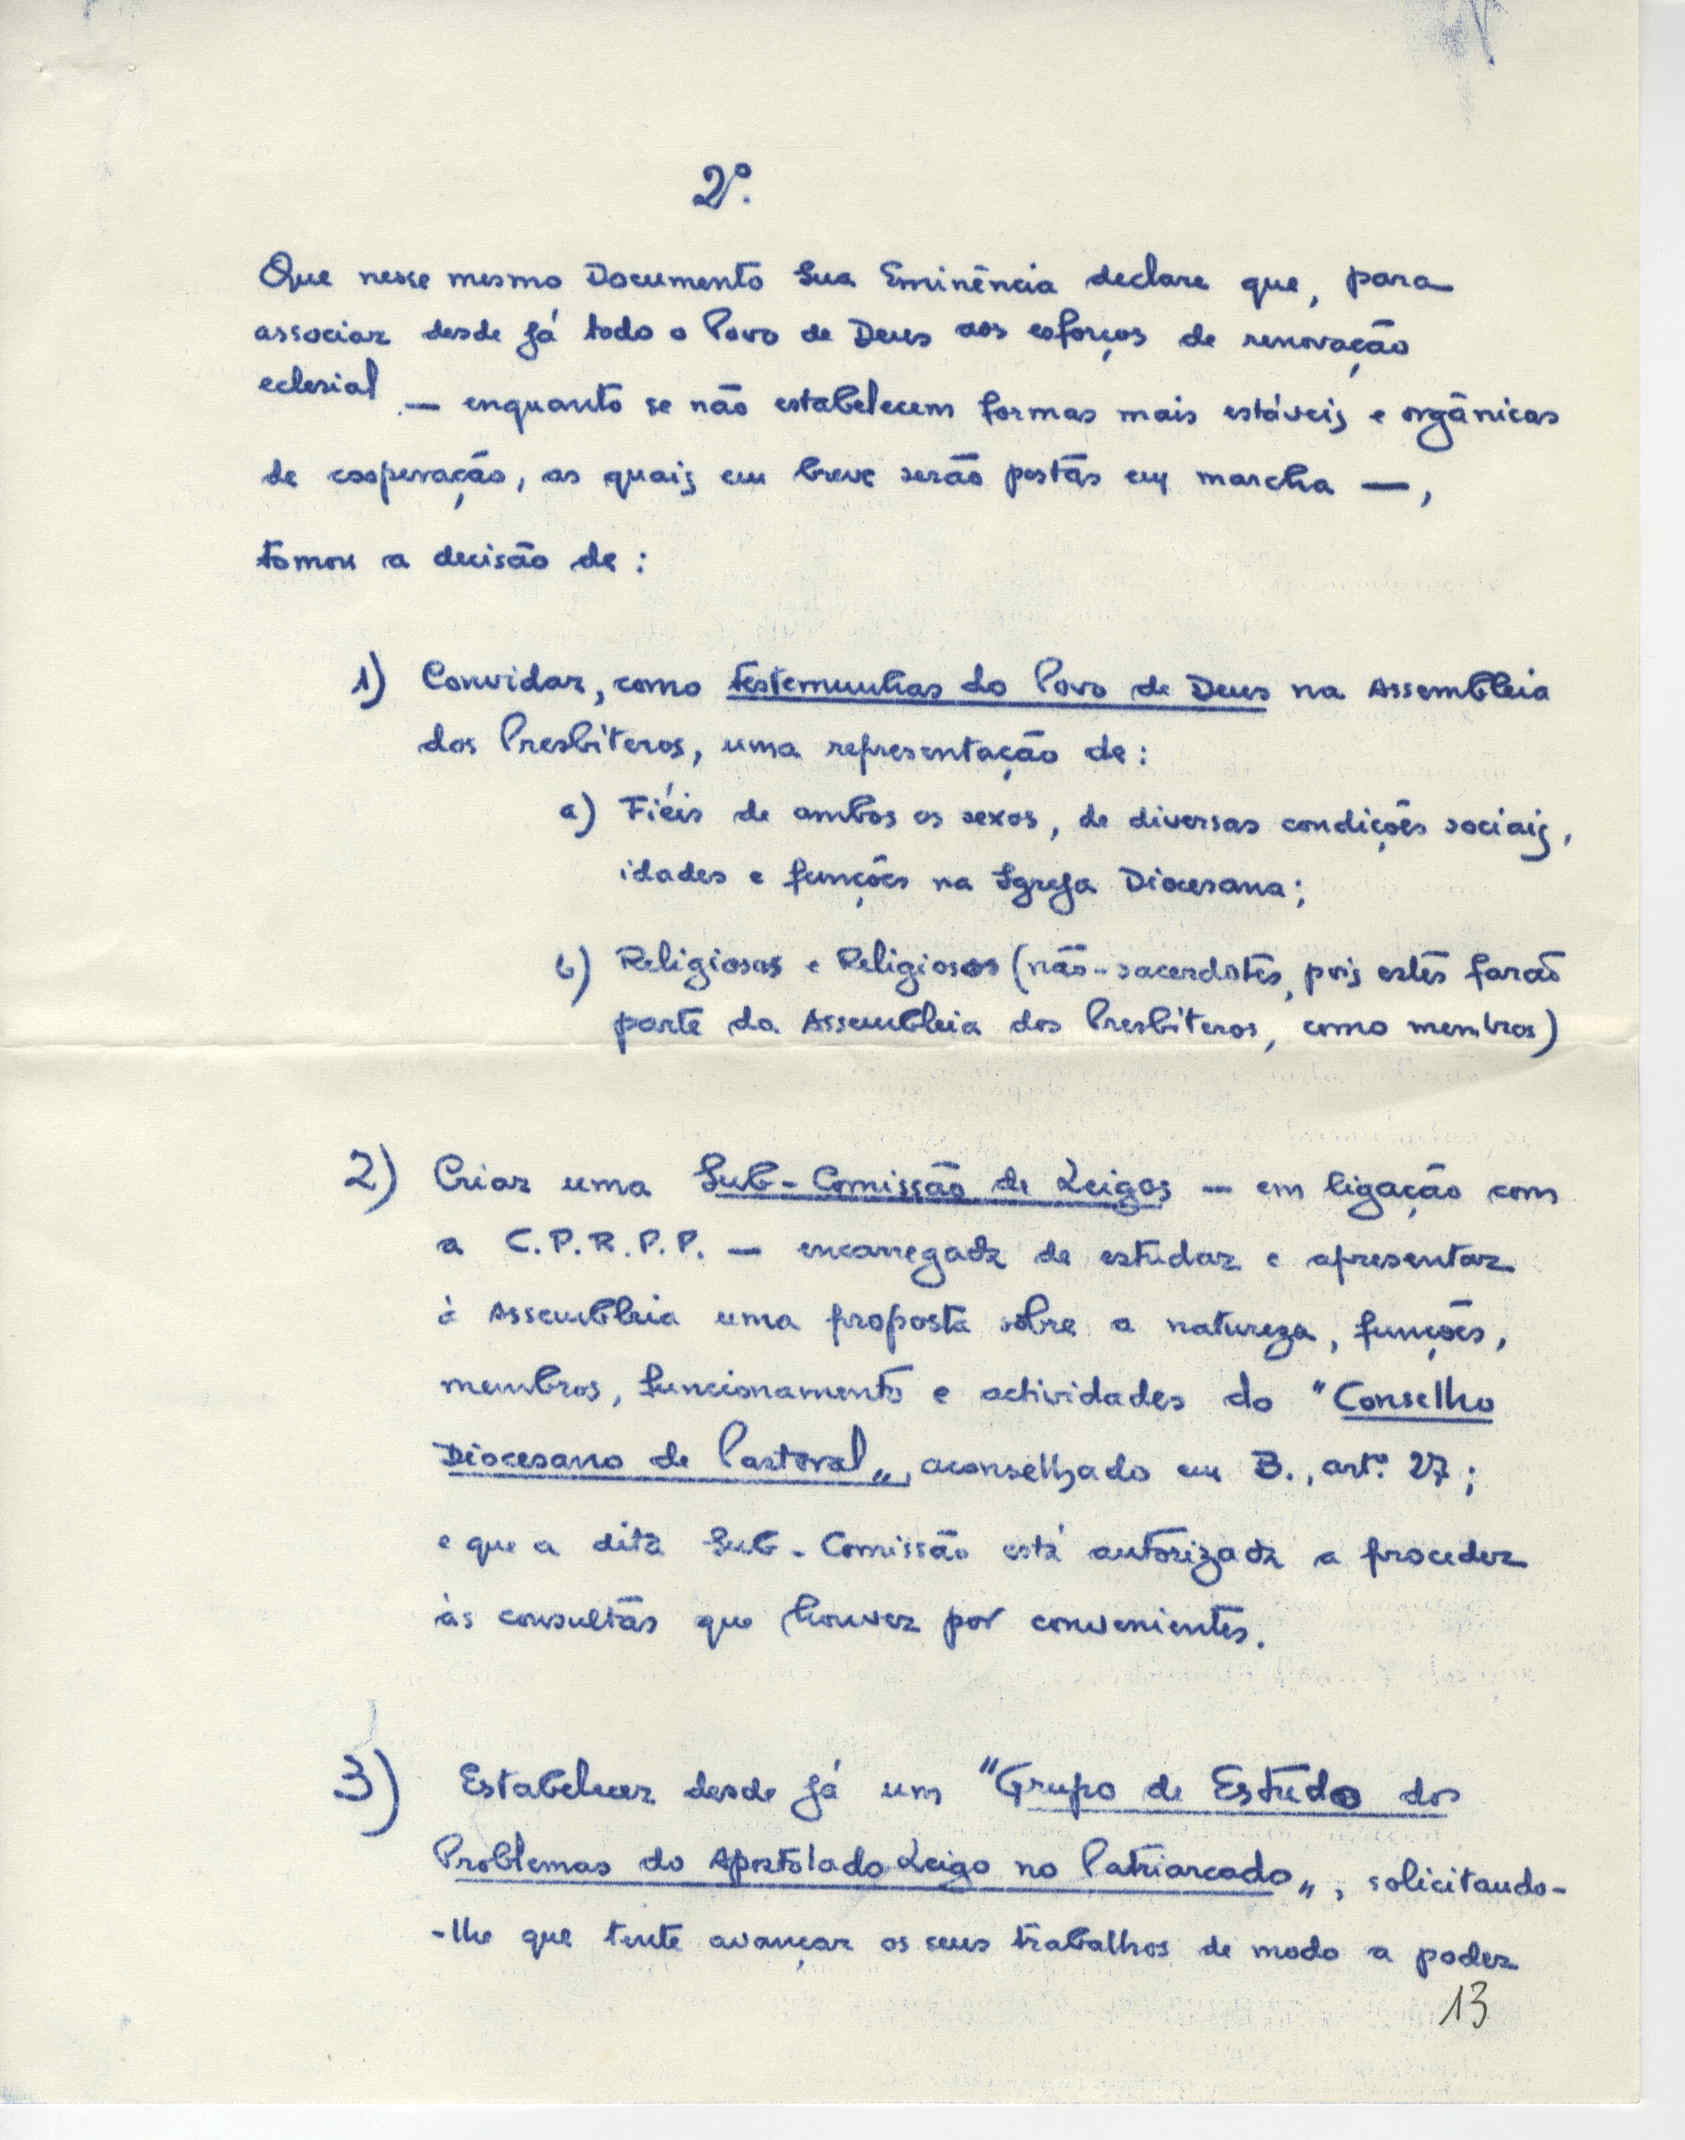 2º.
Que nesse mesmo Documento Sua Eminência declare que, para
associar desde já todo o Povo de Deus aos esforços de renovação
eclesial — enquanto se não estabelecem formas mais estáveis e orgânicas
de cooperação, as quais em breve serão postas em marcha —,
tomou a decisão de:
1) Convidar, como testemunhas do Povo de Deus na Assembleia
dos Presbíteros, uma representação de:
a) Fiéis de ambos os sexos, de diversas condições sociais,
idades e funções na Igreja Diocesana;
b) Religiosas e Religiosos (não-sacerdotes, pois estes farão
parte da Assembleia dos Presbíteros, como membros)
2) Criar uma Sub-Comissão de Leigos — em ligação com
a C.P.R.P.P. — encarregada de estudar e apresentar
à Assembleia uma proposta sobre a natureza, funções,
membros, funcionamento e actividades do "Conselho
Diocesano de Pastoral", aconselhado em B., artº 27;
e que a dita Sub-Comissão está autorizada a proceder
às consultas que houver por convenientes.
3) Estabelecer desde já um "Grupo de Estudo dos
Problemas do Apostolado Leigo no Patriarcado", solicitando-
-lhe que tente avançar os seus trabalhos de modo a poder
13